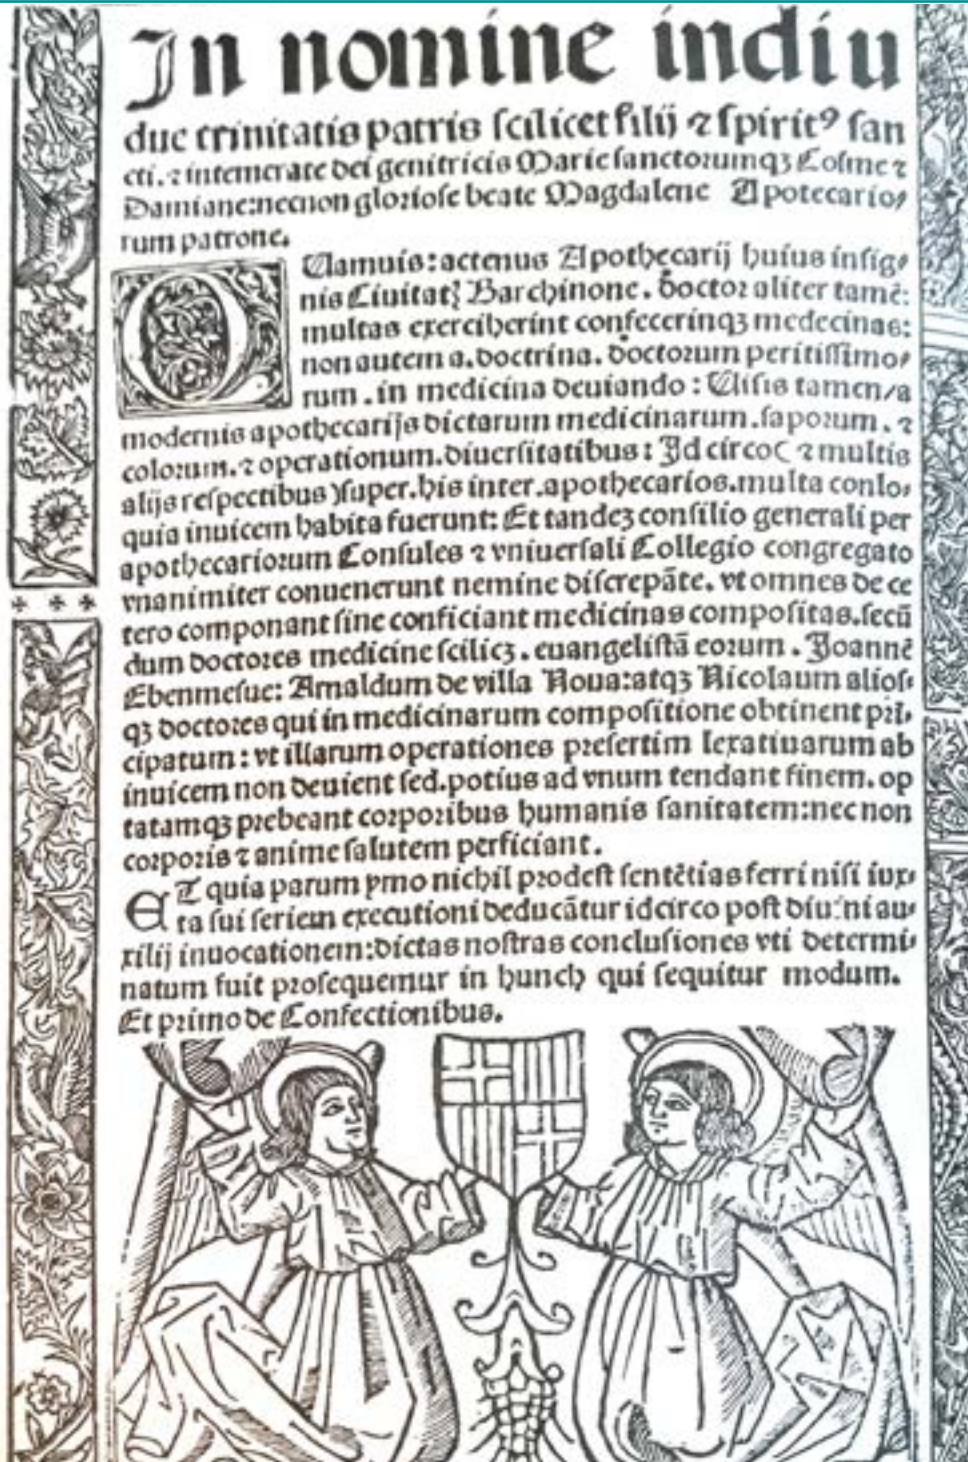 In nomine indiu
due trinitatis patris scilicet filij ⁊ spiritꝰ san
cti. ⁊ intemerate dei genitricis Marie sanctorumqꝫ Cosme ⁊
Damiane: necnon gloriose beate Magdalene Apotecario⸗
rum patrone.
QVamuis: actenus Apothecarij huius insig⸗
nis Ciuitatꝭ Barchinone. doctor aliter tamē:
multas exerciherint confecerinqꝫ medecinas:
non autem a. doctrina. doctorum peritissimo⸗
rum. in medicina deuiando: Visis tamen/a
modernis apothecarijs dictarum medicinarum. saporum. ⁊
colorum. ⁊ operationum. diuersitatibus: Id circo( ⁊ multis
alijs respectibus )super. his inter. apothecarios. multa conlo⸗
quia inuicem habita fuerunt: Et tandeꝫ consilio generali per
apothecariorum Consules ⁊ vniuersali Collegio congregato
vnanimiter conuenerunt nemine discrepāte. vt omnes de ce
tero componant sine conficiant medicinas compositas. secū
dum doctores medicine scilicꝫ. euangelistā eorum. Joannē
Ebenmesue: Arnaldum de villa Noua: atqꝫ Nicolaum alios⸗
qꝫ doctores qui in medicinarum compositione obtinent pri⸗
cipatum: vt illarum operationes presertim lexatiuarum ab
inuicem non deuient sed. potius ad vnum tendant finem. op
tatamqꝫ prebeant corporibus humanis sanitatem: nec non
corporis ⁊ anime salutem perficiant.
ET quia parum ymo nichil prodest sentētias ferri nisi iux⸗
ta sui seriem executioni deducātur idcirco post diuini au⸗
xilij inuocationem: dictas nostras conclusiones vti determi⸗
natum fuit prosequemur in hunch qui sequitur modum.
Et primo de Confectionibus.